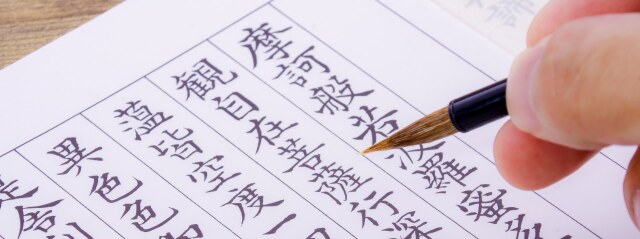 摩訶般若波羅蜜多
観自在菩薩行深
薀皆空度一
異色色
是舎利